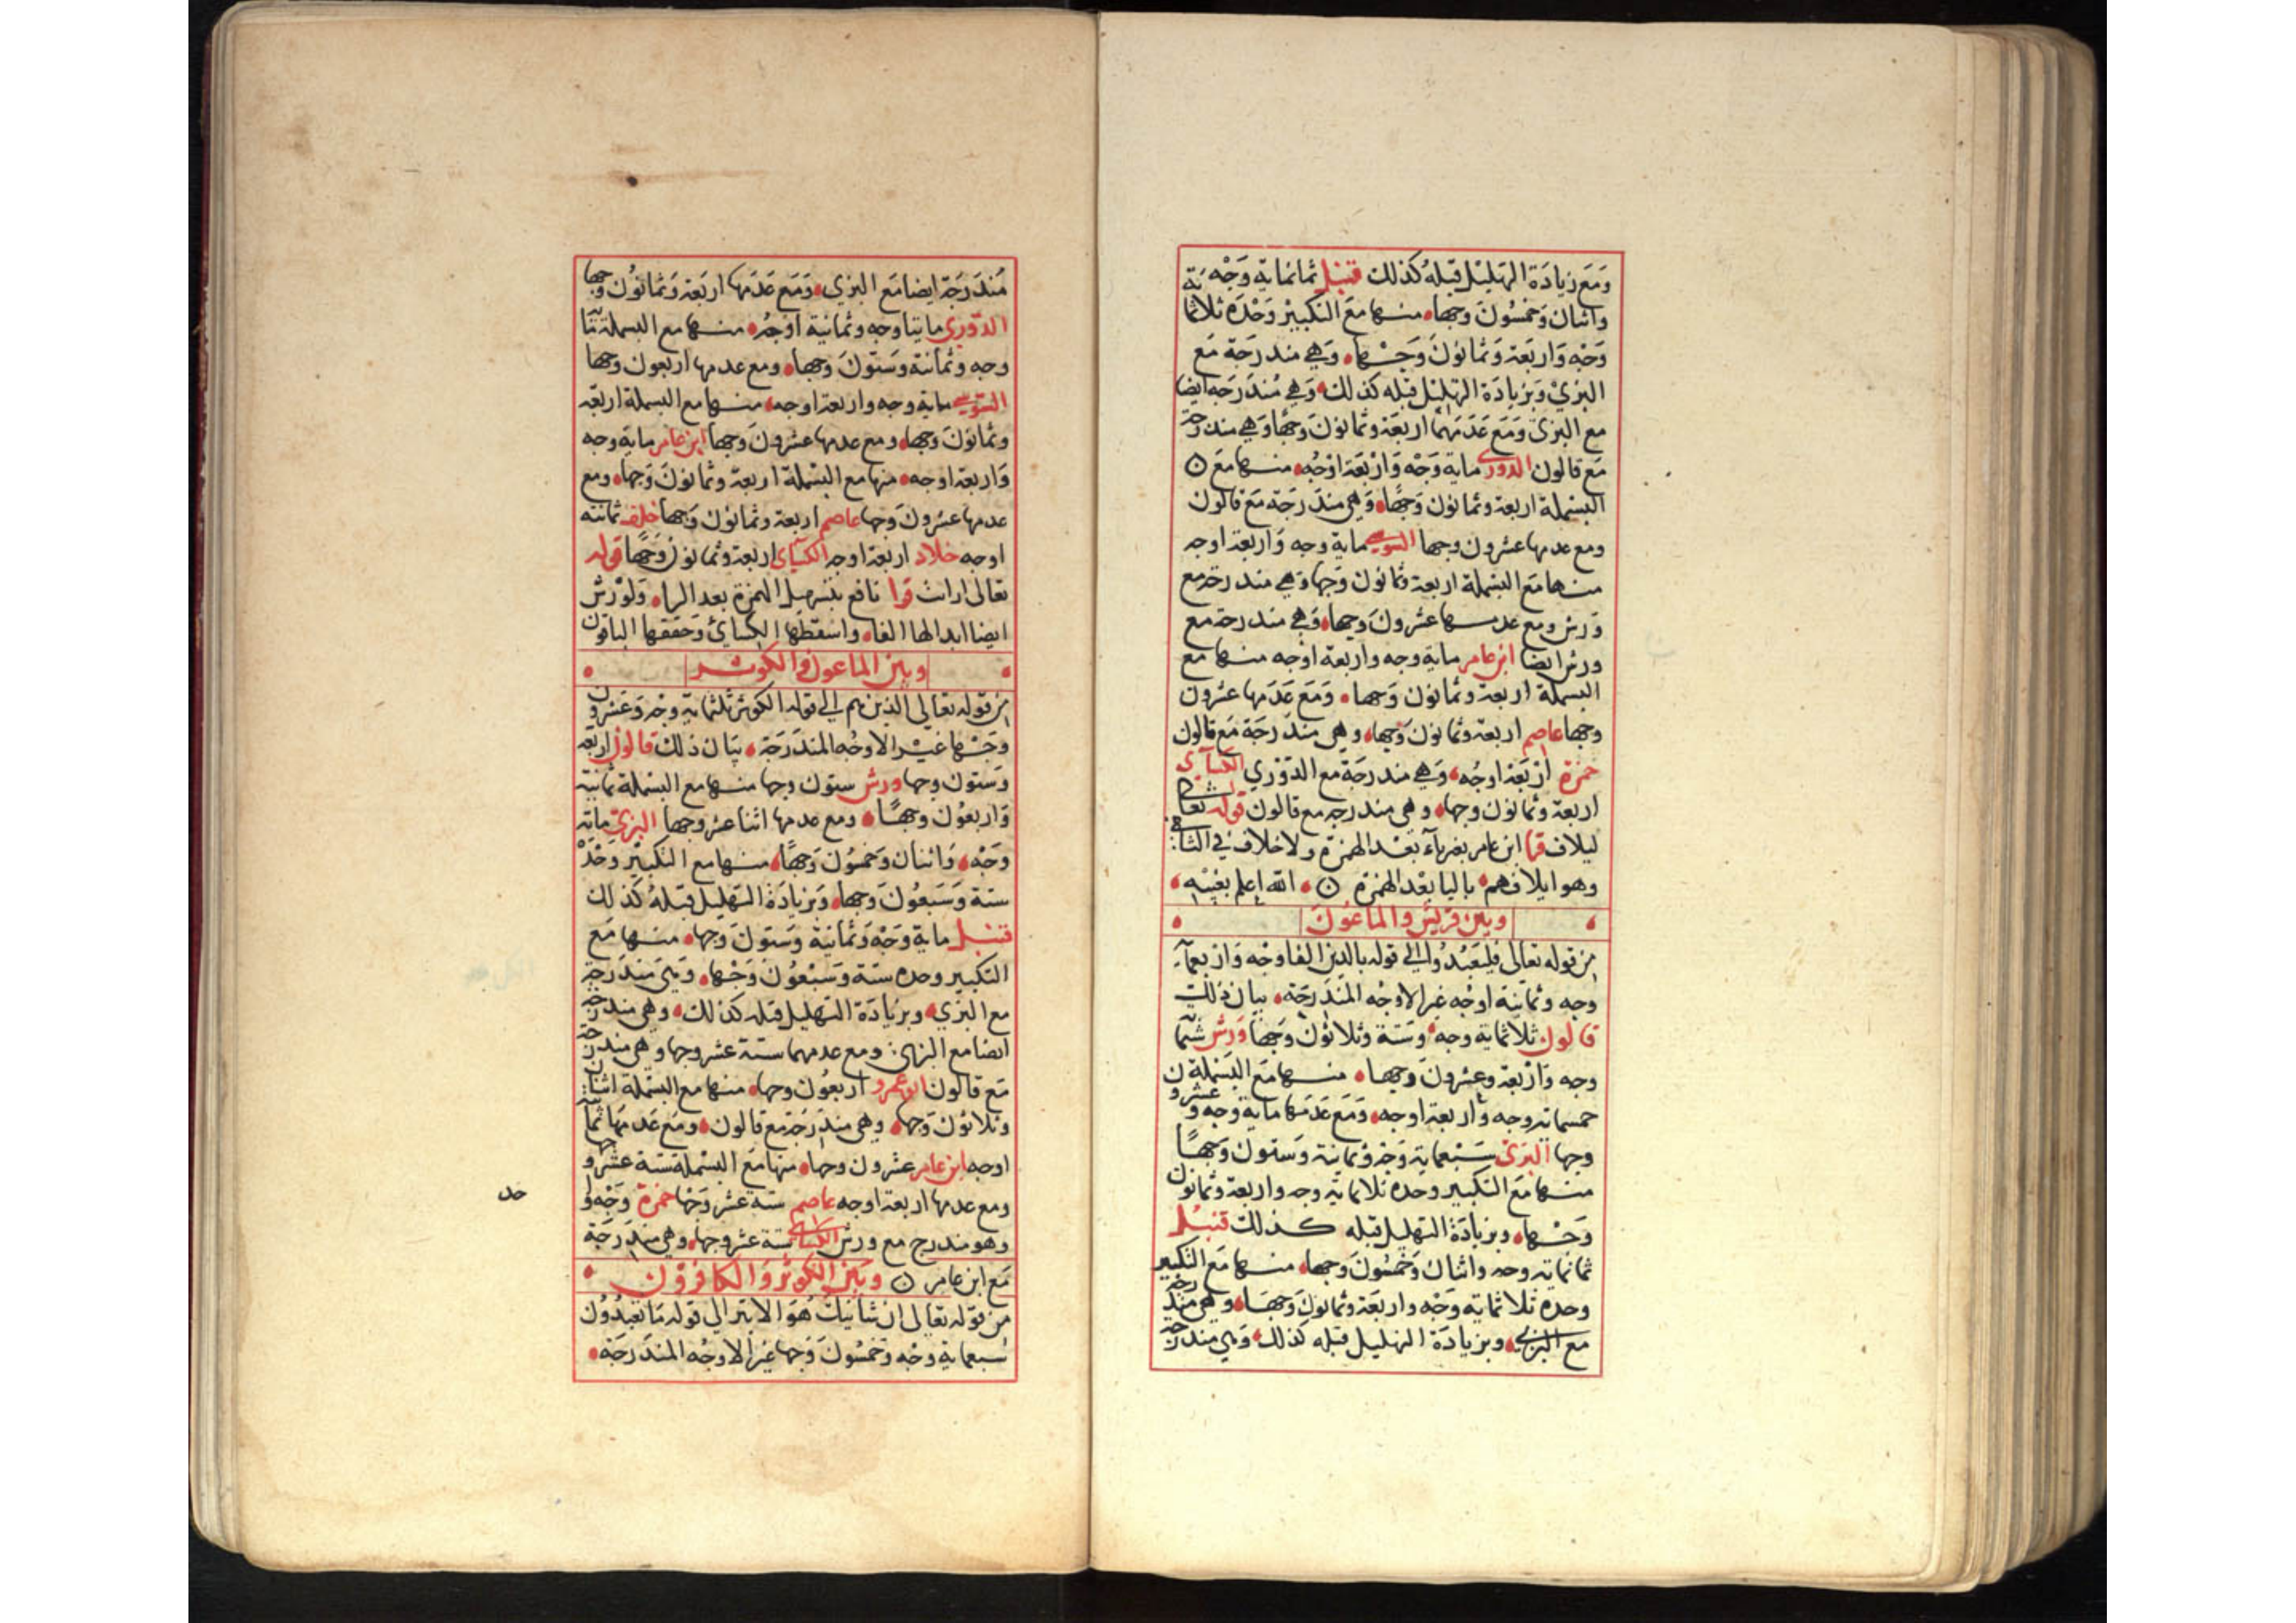 وَمَعَ زيَادَة التهليْل قبْلهُ كذلك قنبل ثمانماية وَجْه
واثنان وَخمسُونَ وجها، منها مَعَ التكبيْر وَحْدَه ثلاثماية
وَجْه وَاربَعَة وَثمانونَ وَجْها، وَهي مندرجَة مَع
البزيْ وَبزيادَة التهليْل قبله كذلك، وَهي مُندَرَجَه ايضا
مع البزي وَمَعَ عَدَمهمَا اربَعَة وثمانونَ وَجهًا وَهي مندرجة
مَع قالون الدورى ماية وَجْه وَارْبَعَة اوْجُه، منها مَعَ
البسْملة اربعة وثمانون وَجهًا، وَهي مندَرجَة مَعَ قالون
ومع عدمها عشرون وجها السوسي ماية وجه وَاربعة اوجه
منها مَعَ البسْملة اربعة وثمانون وَجها وَهي مندرجة مع
وَرش ومع عدمها عشرونَ وجها، وَهي مندرجة مع
ورش ايضا ابن عامر ماية وجه واربعة اوْجه منها مع
البسملة اربعة وثمانون وَجها، وَمَع عَدَمها عشرون
وجها عاصم اربعة وثمانون وَجها، وهي مندرَجَة مَع قالون
حمزة ارْبَعَة اوجُه، وَهي مندرجَة مع الدوْري الكسآي
اربعة وثمانون وجها، وهي مندرجه مع قالون قوله تعالى
ليلاف قرا ابن عامر بغيريآء بعْد الهمزة ولاخلاف في الثاني
وهو ايلافهم، باليا بعْد الهمزة ن، الله اعلم بغيبه،
وبين قريش والماعون
من قوله تعالى فليَعْبُدُوا الي قوله بالدين الفا وجْه وَاربعمآية
وجه وثمانية اوجُه غير الاوجُه المندَرجَة، بيان ذلك
قالون ثلاثماية وجه، وَستة وثلاثون وَجها وَرش ستمآية
وجه وَارْبعة وعشرونَ وَجها، منها مَعَ البَسْملة
خمسماية وجه واربعة اوجه، وَمَع عَدَمها ماية وجه وعشرون
وجها البزي سَبْعماية وَجْه وَثمانية وَستون وَجهًا
منها مَع التكبير وحده ثلاثماية وجه واربعة وثمانون
وَجْها، وبزيادَة التهليل قبله كذلك قنبُل
ثمانماية وجه واثنان وَخمْسُونَ وجها، منها مَع التكبير
وحده ثلاثماية وَجْه واربَعَة وثمانونَ وَجهَا، وَهي مندرجة
مع البزي، وبزيادَة التهليل قبله كذلك، وَهي مندرجة
مُندَرَجَة ايضا مَع البزي، وَمَع عَدَمها اربعة وَثمانوُن وجها
الدوري مايتا وجه وثمانية اوجُه، منها مع البسملة مآية
وجه وثمانية وَستونَ وَجها، ومع عدمها اربعون وجها
السوسي ماية وجه واربعة اوجه، منها مع البسملة اربعة
وثمانونَ وجها، ومع عدمها عشرونَ وَجها ابن عامر ماية وجه
وَاربعة اوجه، منها مع البسْملة اربعة وثمانونَ وَجها، ومع
عدمها عشرونَ وَجها عاصم اربعة وثمانون وَجها خلف ثمانية
اوجه خلاد اربعة اوجه الكسآى اربعة وثمانون وَجها قوله
تعالى ارايت قرا نافع بتسهيل الهمزة بعد الراء، وَلوَرْش
ايضا ابدالها الفا، واسقطها الكسائ وَحققها الباقون
وبين الماعون والكوثر
من قوله تعالى الذين هم الي قوله الكوثر ثلثماية وجْه وَعشرون
وَجْها غيْر الاوجُه المندَرجَة، بيَان ذلك قالون اربعة
وَستون وجها ورش ستون وجها منها مع البسْملة ثمانية
وَاربعوُن وَجهًا، ومع عدمها اثنا عشر وجها البزيْ ماية
وَجْه، وَاثنان وَخمسُون وَجهًا، منها مع التكبيْر وَحْدَهْ
ستة وَسَبعُونَ وَجها، وَبزيَادَة التهليل قبْلهُ كذلك
قنبل ماية وَجْه وَثمانيَة وَستونَ وجها، منها مَع
التكبير وحده ستة وَسَبْعوُن وَجْها، وَهيَ مندرَجة
مع البزي، وبزيادَة التهليل قبله كذلك، وهي مندرجة
ايضا مع البزي، ومع عدمهما ستة عشر وجها وهي مندرجة
مَع قالون ابو عمرو اربعُون وجها، منها مع البسملة اثنان
وثلاثون وَجها، وهي مندَرجَة مع قالون، ومَع عَدَمهَا ثمآنية
اوجه ابن عامر عشرون وجها، منها مَعَ البسْملة ستة عشر وجها
ومع عدمها اربعة اوجه عاصم ستة عشر وَجْها حمزة وَجْه
وهو مندرج مع ورش الكسآي ستة عشر وجها، وهي مندَرجَة
مَع ابن عامر ن وبَين الكوثر وَالكافرون
من قوله تعالى ان شانيك هُوَ الابتر الي قوله مَا تعبدُوُن
سبعماية وجْه وَخمسُونَ وَجها غير الاوجُه المندَرجَة،